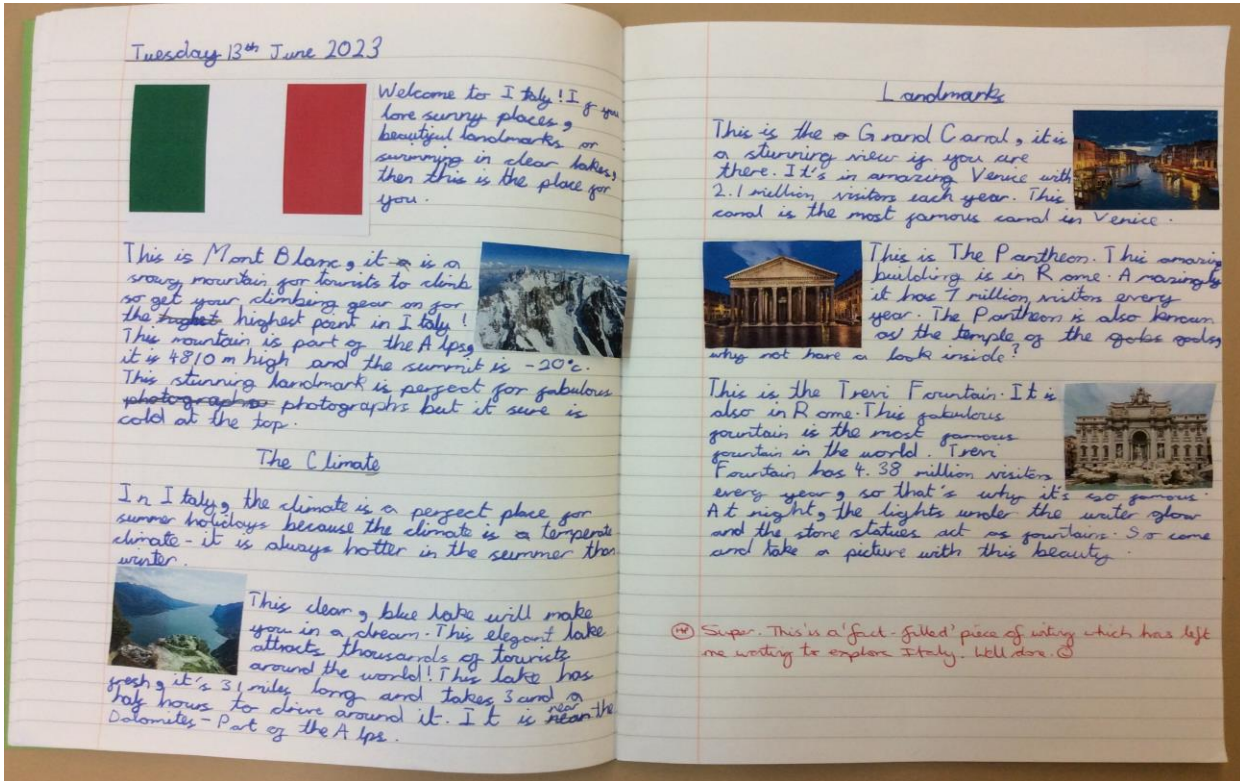 Tuesday 13th June 2023
Welcome to Italy! If you
love sunny places,
beautiful landmarks or
swimming in clear lakes,
then this is the place for
you.
This is Mont Blanc, it is a
snowy mountain for tourists to climb
so get your climbing gear on for
the highest point in Italy!
This mountain is part of the Alps,
it is 4810m high and the summit is -20°c.
This stunning landmark is perfect for fabulous
photographs photographs but it sure is
cold at the top.
The Climate
In Italy, the climate is a perfect place for
summer holidays because the climate is a temperate
climate - it is always hotter in the summer than
winter.
This clear, blue lake will make
you in a dream. This elegant lake
attracts thousands of tourists
around the world! This lake has
fresh, it's 31 miles long and takes 3 and a
half hours to drive around it. It is near the
Dolomites - Part of the Alps.
Landmarks
This is the Grand Canal, it is
a stunning view if you are
there. It's in amazing Venice with
2.1 million, visitors each year. This
canal is the most famous canal in Venice.
This is The Pantheon. This amazing
building is in Rome. Amazingly
it has 7 million, visitors every
year. The Pantheon is also known
as the temple of the gods,
why not have a look inside?
This is the Trevi Fountain. It is
also in Rome. This fabulous
fountain is the most famous
fountain in the world. Trevi
Fountain has 4.38 million visitors
every year, so that's why it's so famous.
At night, the lights under the water glow
and the stone statues act as fountains. So come
and take a picture with this beauty.
Super. This is a 'fact-filled' piece of writing which has left
me wanting to explore Italy. Well done.